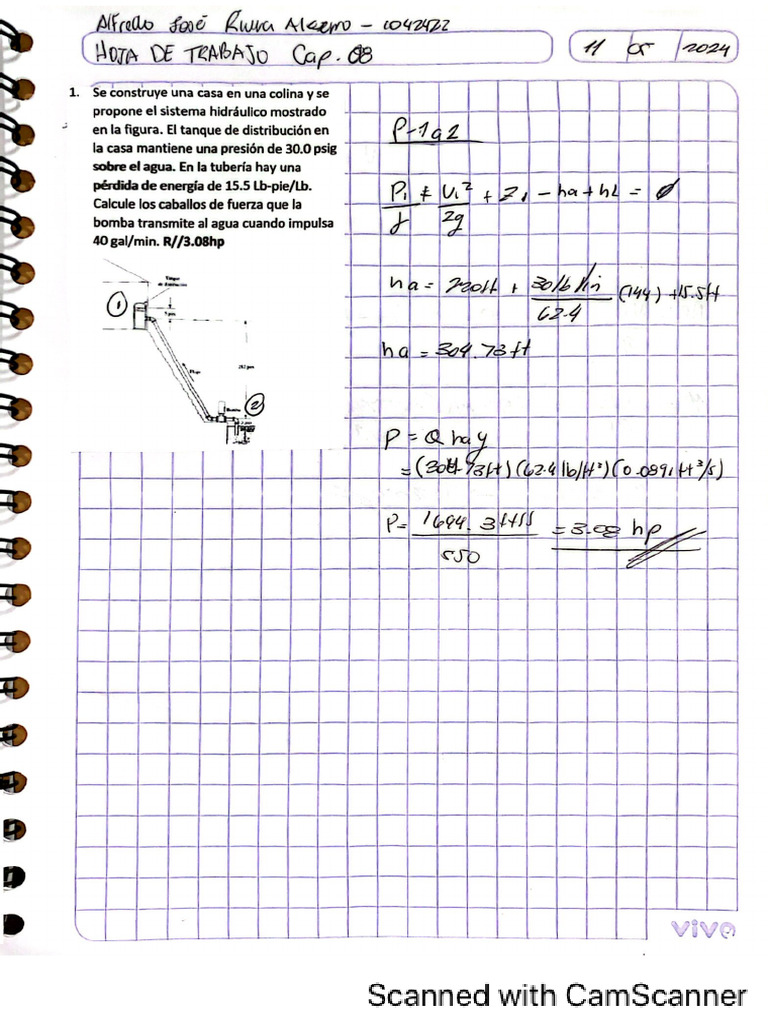 Alfredo José Rivera - 1042422
HOJA DE TRABAJO Cap. 08
11 05 2024
1. Se construye una casa en una colina y se
propone el sistema hidráulico mostrado
en la figura. El tanque de distribución en
la casa mantiene una presión de 30.0 psig
sobre el agua. En la tubería hay una
pérdida de energía de 15.5 Lb-pie/Lb.
Calcule los caballos de fuerza que la
bomba transmite al agua cuando impulsa
40 gal/min. R//3.08hp
Tanque
de distribución
1
5 pies
Flujo
212 pies
2
Bomba
P-1a2
P1/γ + V1²/2g + Z1 - ha + hL = 0
ha = 220ft + 30 lb/in/62.4 (144) + 15.5ft
ha = 304.73 ft
P = Q ha γ
= (304.73ft) (62.4 lb/ft³) (0.0891 ft³/s)
P = 1694.3 /550 = 3.08 hp
vivo
Scanned with CamScanner